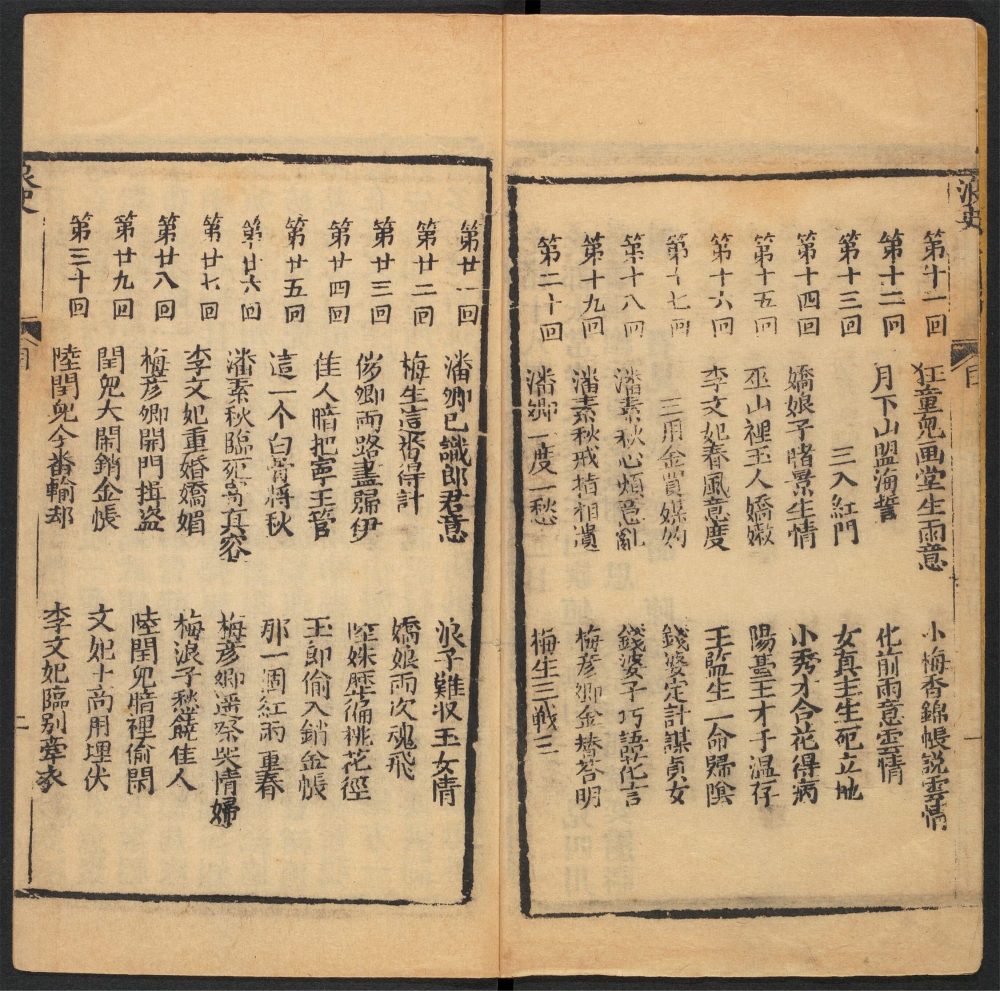 浪史
目 一
第十一回 狂童兒画堂生雨意 小梅香錦帳説雲情
第十二回 月下山盟海誓 化前雨意雲情
第十三回 三入紅門 女真主生死立地
第十四回 嬌娘子睹景生情 小秀才合花得病
第十五回 巫山裡玉人嬌嫩 陽臺王才子温存
第十六回 李文妃春風意度 王監生一命歸陰
第十七回 三用金買媒妁 錢婆定計謀貞女
第十八回 潘素秋心煩意亂 錢婆子巧語花言
第十九回 潘素秋戒指相遺 梅彦卿金替答明
第二十回 潘卿一度一愁 梅生三戦三
第廿一回 潘卿已識郎君意 浪子難収玉女情
第廿二回 梅生這番得計 嬌娘兩次魂飛
第廿三回 俏卿両路盡歸伊 陸姝歴徧桃花徑
第廿四回 佳人暗把寧王管 玉郎偷入銷金帳
第廿五回 這一个白骨将秋 那一個紅雨重春
第廿六回 潘素秋臨死寄真容 梅彦卿遥祭哭情婦
第廿七回 李文妃重婚嬌媚 梅浪子愁饒佳人
第廿八回 梅彦卿開門揖盗 陸閏兒暗裡偷閑
第廿九回 閏兒大閙銷金帳 文妃十高用埋伏
第三十回 陸閏兒今番輸却 李文妃臨别牽衣
目 二